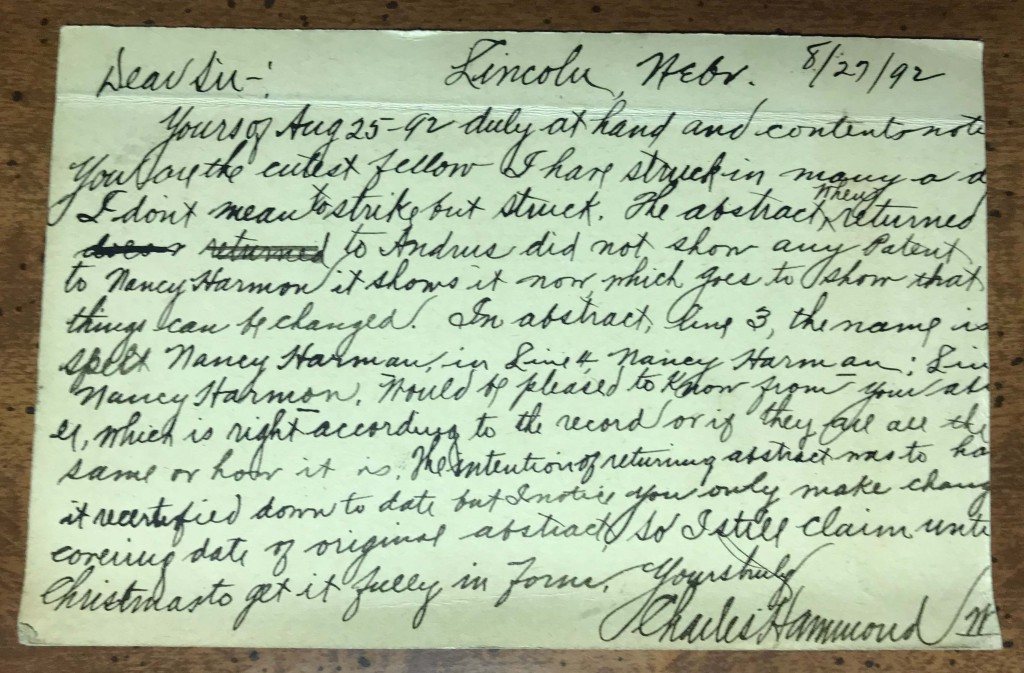 Dear Sir-: Lincoln, Nebr. 8/27/92
Yours of Aug 25-92 duly at hand and contents note
You are the cutest fellow I have struck in many a d
I dont mean to strike but struck. The abstract when returned
returned to Andrus did not show any Patent
to Nancy Harmon it shows it now which goes to show that
things can be changed. In abstract, line 3, the name is
spelt Nancy Harman, in Line 4, Nancy Harman; Lin
Nancy Harmon. Would be pleased to know from you ab
which is right according to the record or if they are all the
same or how it is. The intention of returning abstract was to ha
it recertified down to date but I notice you only make chang
covering date of original abstract, so I still claim unti
Christmas to get it fully in form. Yours truly
Charles Hammond